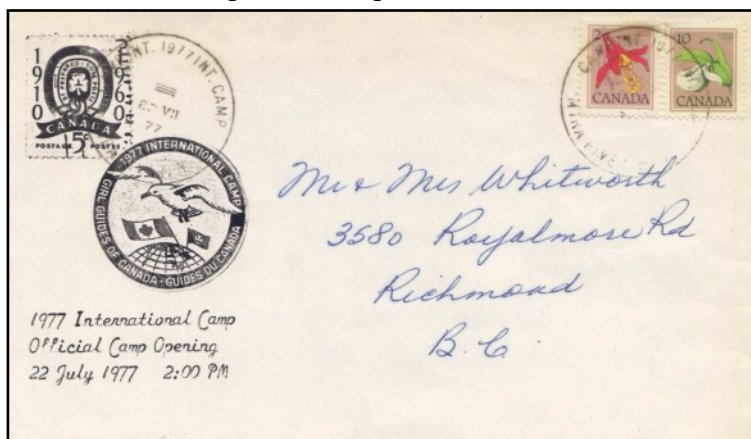 1910 1960
BE PREPARED - SOIS PRÊTE
CANADA
POSTAGE 5¢ POSTES
1977 INT. CAMP
VII
77
1977 INTERNATIONAL CAMP
GIRL GUIDES OF CANADA - GUIDES DU CANADA
1977 International Camp
Official Camp Opening
22 July 1977 2:00 PM
2
CANADA
10
CANADA
Mr & Mrs Whitworth
3580 Royalmore Rd
Richmond
B.C.